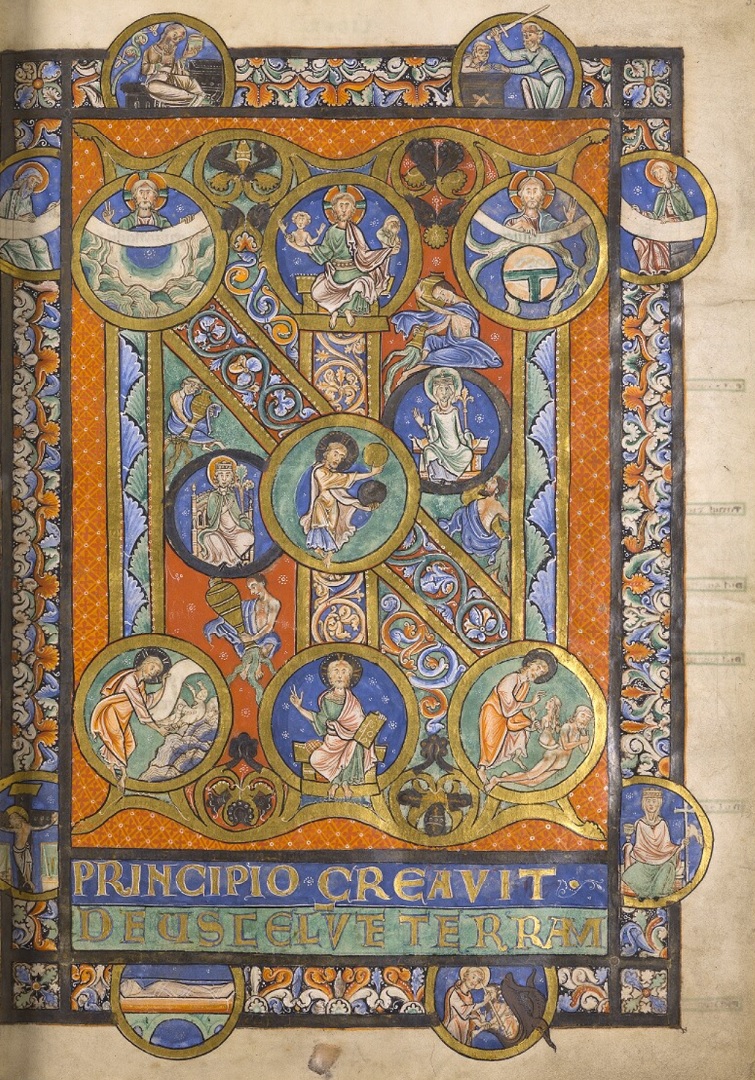 IN
PRINCIPIO CREAVIT
DEUS CELV ET TERRAM